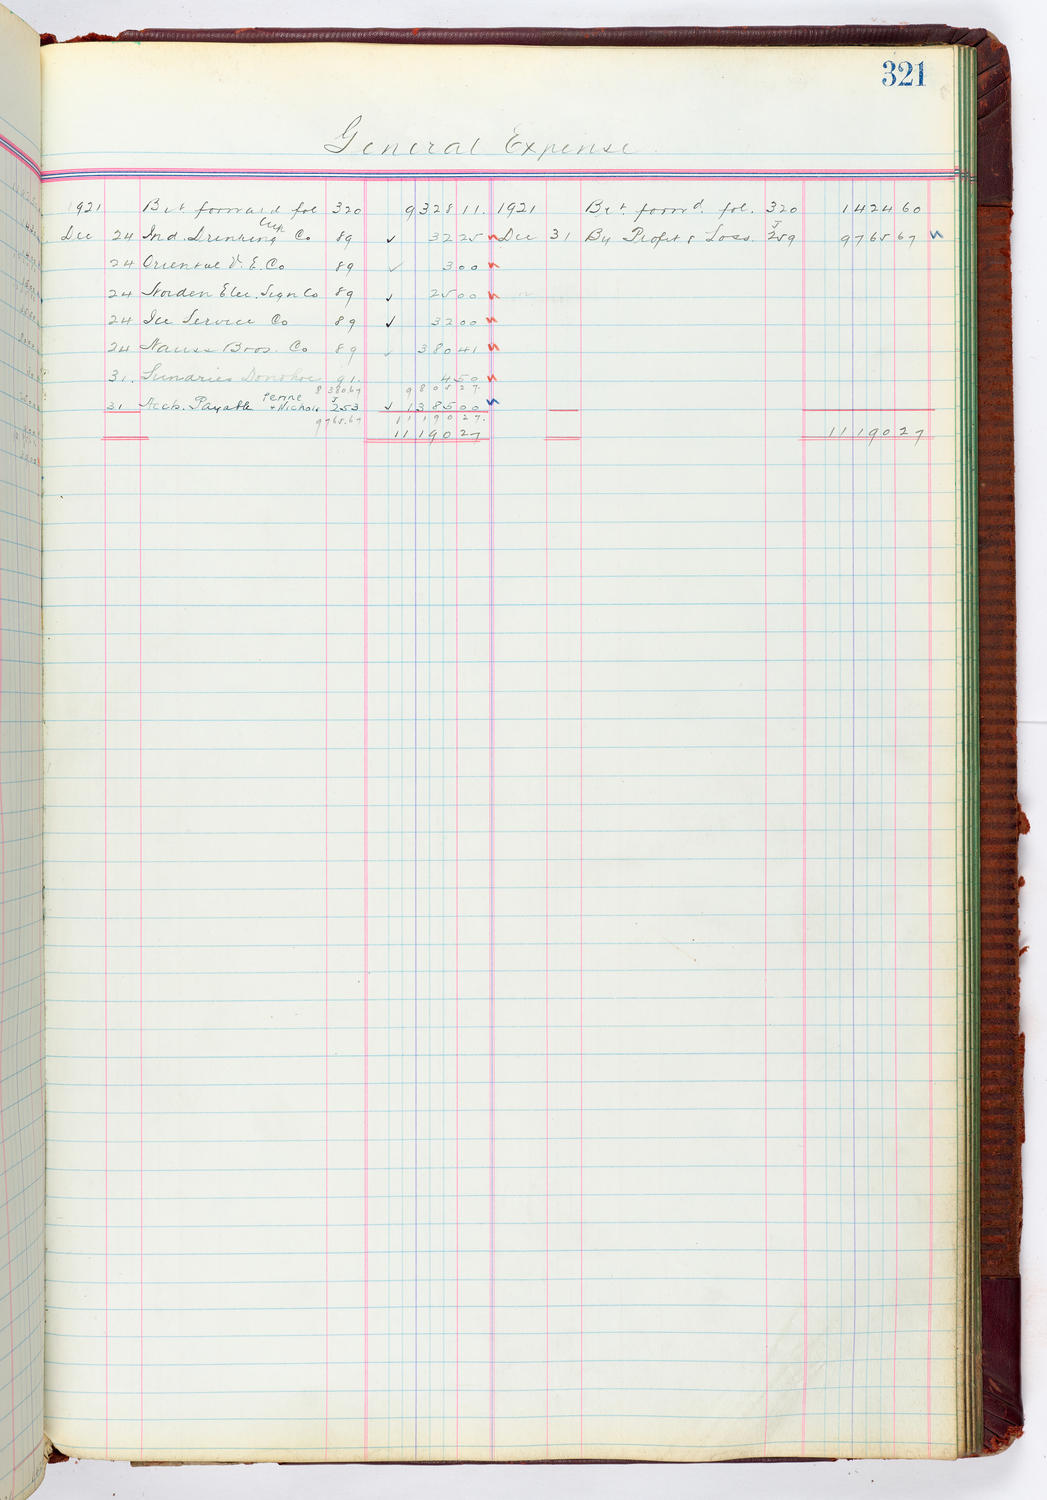 321
General Expense
1921 Brt forward fol 320 9328 11. 1921 Brt. forw'd. fol. 320 1424 60
Dec 24 Ind. Drinking Cup Co 89 ✓ 32 25 Dec 31 By Profit & Loss. J 259 9765 67
24 Oriental V. E. Co 89 ✓ 3 00
24 Norden Elec. Sign Co 89 ✓ 25 00
24 Ice Service Co 89 ✓ 32 00
24 Nauss Bros. Co 89 ✓ 380 41
31. Sundries Donohoe 91. 4 50
8380.67 9805 27.
31 Accts. Payable Perine & Nichols J 253 ✓ 1385 00
9765.67 11190 27.
11190 27 11190 27